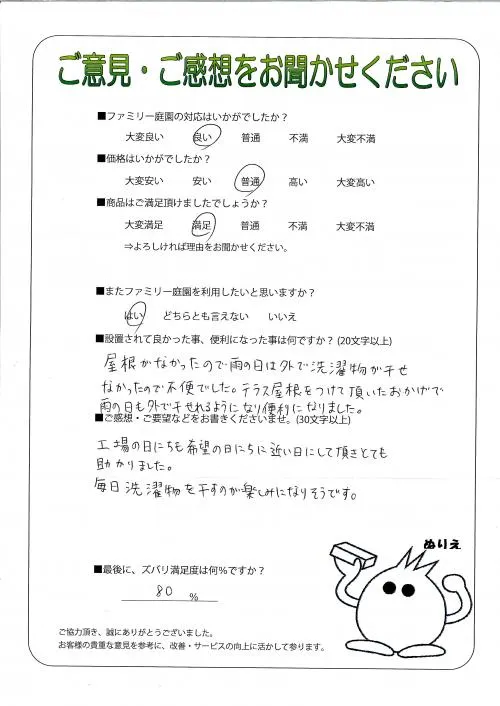 ご意見・ご感想をお聞かせください
■ファミリー庭園の対応はいかがでしたか？
大変良い 良い 普通 不満 大変不満
■価格はいかがでしたか？
大変安い 安い 普通 高い 大変高い
■商品はご満足頂けましたでしょうか？
大変満足 満足 普通 不満 大変不満
⇒よろしければ理由をお聞かせください。
■またファミリー庭園を利用したいと思いますか？
はい どちらとも言えない いいえ
■設置されて良かった事、便利になった事は何ですか？(20文字以上)
屋根がなかったので雨の日は外で洗濯物が干せ
なかったので不便でした。テラス屋根をつけて頂いたおかげで
雨の日も外で干せれるようになり便利になりました。
■ご感想・ご要望などをお書きくださいませ。(30文字以上)
工場の日にちも希望の日にちに近い日にして頂きとても
助かりました。
毎日洗濯物を干すのが楽しみになりそうです。
ぬりえ
■最後に、ズバリ満足度は何％ですか？
80 %
ご協力頂き、誠にありがとうございました。
お客様の貴重な意見を参考に、改善・サービスの向上に活かして参ります。